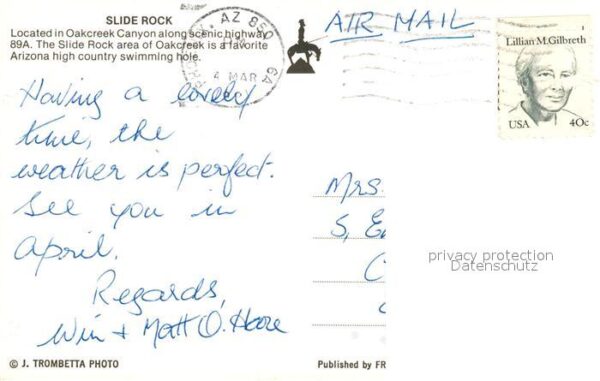 SLIDE ROCK
Located in Oakcreek Canyon along scenic highway
89A. The Slide Rock area of Oakcreek is a favorite
Arizona high country swimming hole.
AZ 850
4 MAR
AIR MAIL
Lillian M. Gilbreth
USA 40c
Having a lovely
time, the
weather is perfect.
See you in
April.
Regards,
Win + Matt O. Hoare
Mrs.
S,
privacy protection
Datenschutz
© J. TROMBETTA PHOTO
Published by FR